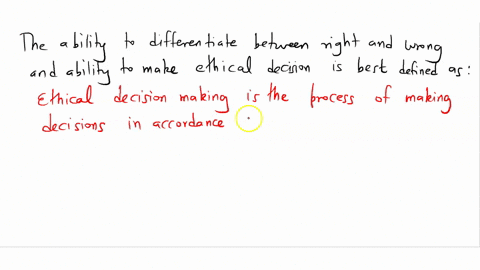 The ability to differentiate between right and wrong
and ability to make ethical decision is best defined as:
Ethical decision making is the process of making
decisions in accordance